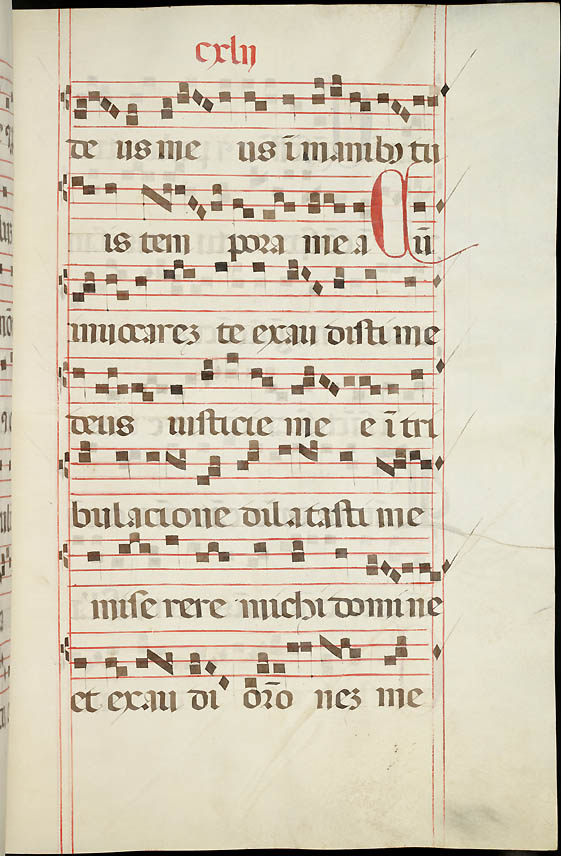 cxlij
de us me us ī manibꝫ tu
is tem pora me a Cū
inuocarez te exau disti me
deus iusticie me e ī tri
bulacione dilatasti me
mise rere michi domine
et exau di orōnez me